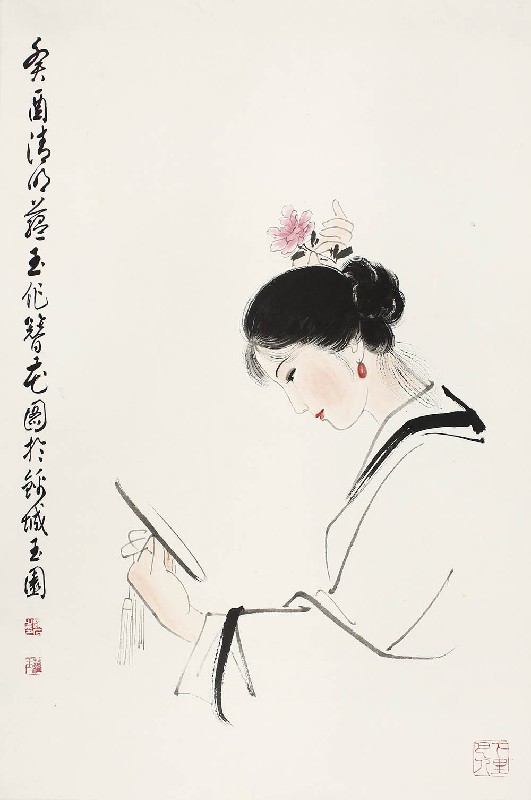 癸酉清明蕴玉作簪花图于锦城玉园